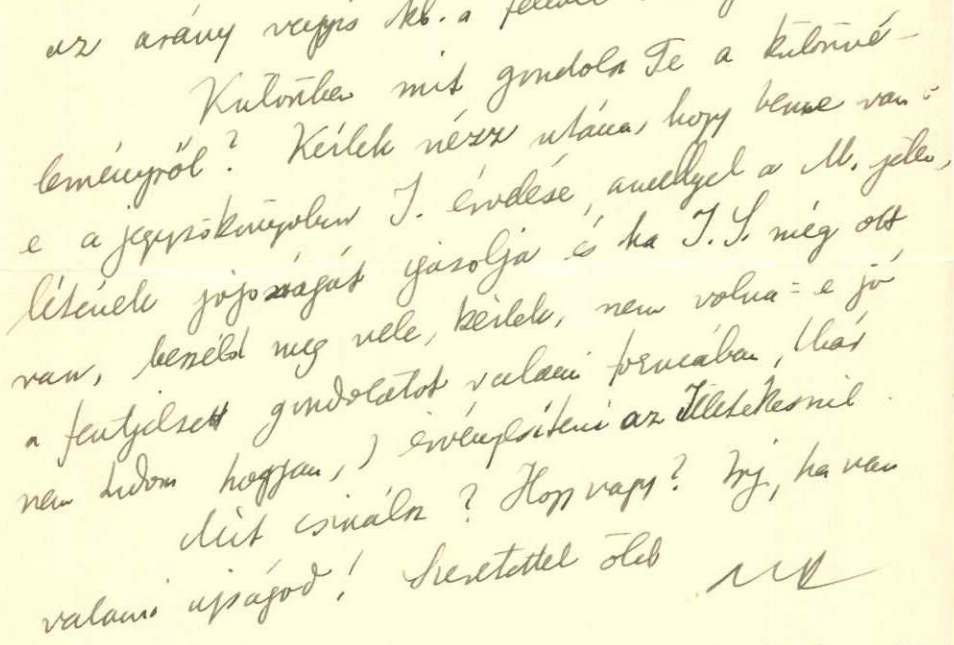 az arány vagyis kb. a
Különben mit gondolsz Te a különvé-
leményről? Kérlek nézz utána, hogy benne van-
e a jegyzőkönyvben J. érvelése, amellyel a M. jelen,
létének jogosságát igazolja és ha J. S. még ott
van, beszéld meg vele, kérlek, nem volna-e jó
a fentjelzett gondolatot valami formában, (bár
nem tudom hogyan,) érvényesíteni az illetékesnél.
Mit csinálsz? Hogy vagy? Írj, ha van
valami ujságod! Szeretettel ölel